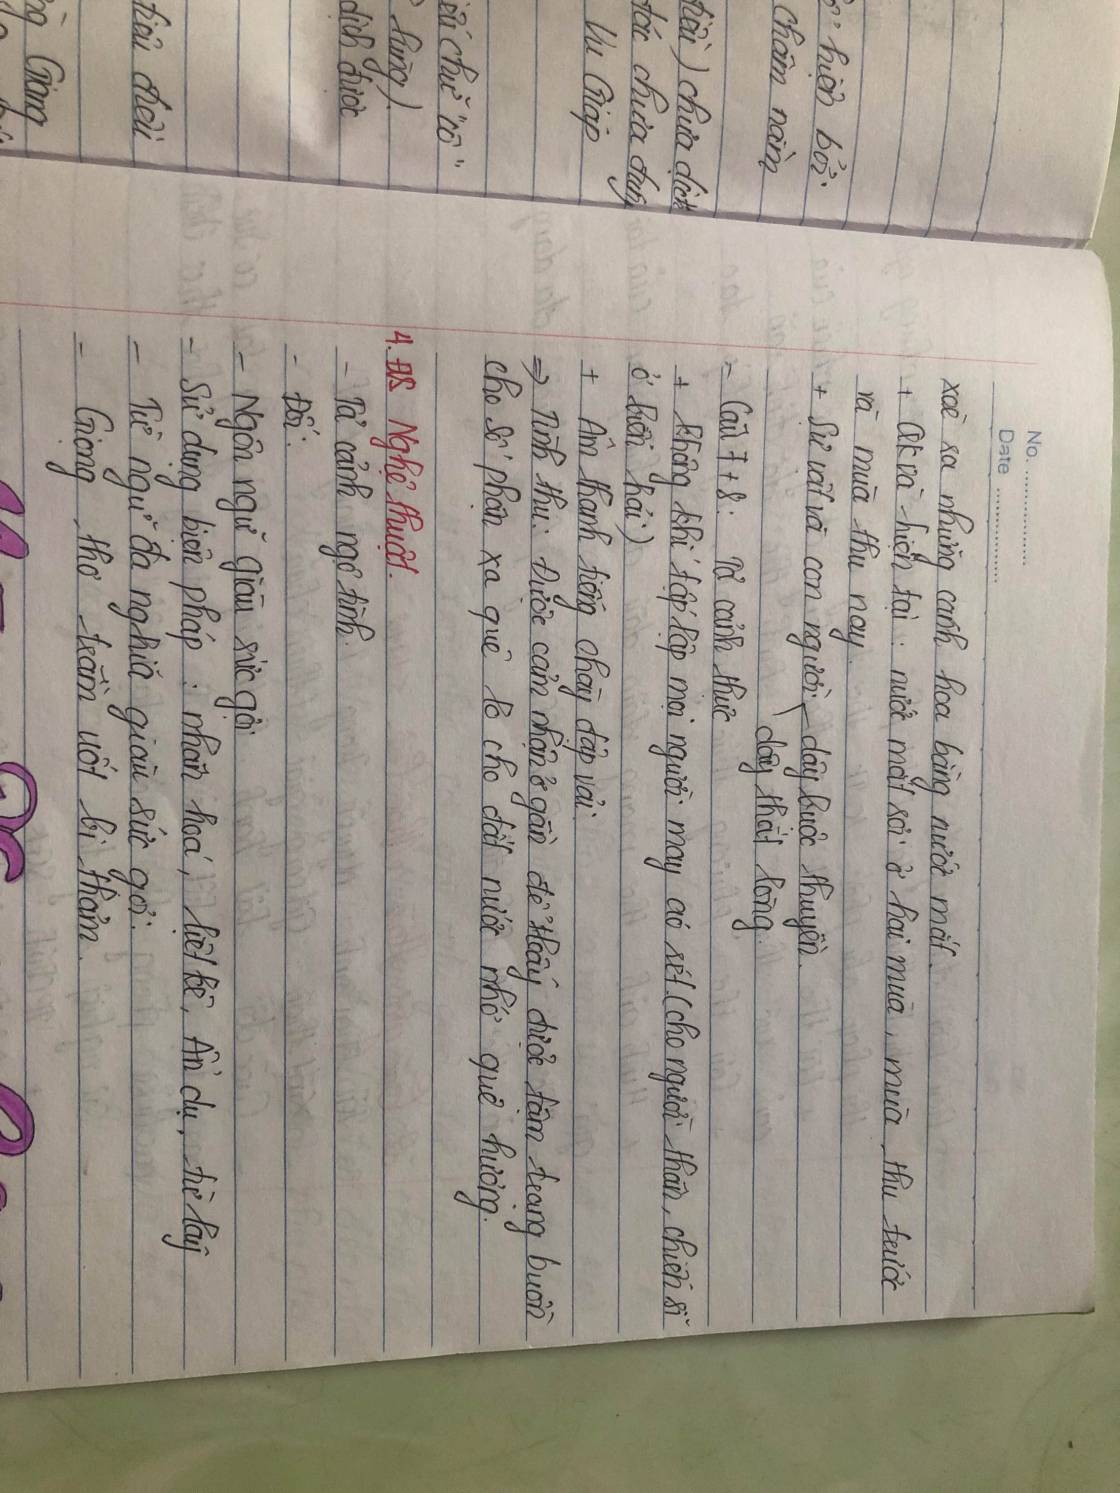 No. ...............
Date ...............
xoè ra những cánh hoa bằng nước mắt.
+ QK và hiện tại: nước mắt rơi ở hai mùa, mùa thu trước
và mùa thu nay.
+ Sự vật và con người dây buộc thuyền.
dây thắt lòng.
- Câu 7 + 8: Tả cảnh thực
+ Không khí tấp lập mọi người may áo rét (cho người thân, chiến sĩ
ở biên hải)
+ Âm thanh tiếng chày đập vải
⇒ Tình thu: Được cảm nhận ở gần để thấy được tâm trạng buồn
cho số phận xa quê lo cho đất nước nhớ quê hương.
4. ĐS Nghệ thuật.
- Tả cảnh ngụ tình.
- Đối.
- Ngôn ngữ giàu sức gợi
- Sử dụng biện pháp: nhân hoá, liệt kê, Ẩn dụ, từ láy
- Từ ngữ đa nghĩa giàu sức gợi.
- Giọng thơ trầm uất bi thảm.
hiện bởi
chấm nằm
chưa dịch
chưa
Vu Giáp
chữ "cô"
lùng)
dịch được
tiêu điều
Giang